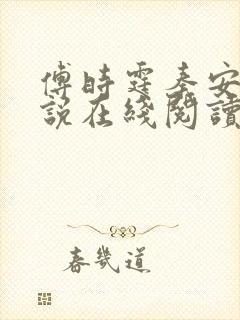 傅時霆秦安
說在綫閱讀
春幾道